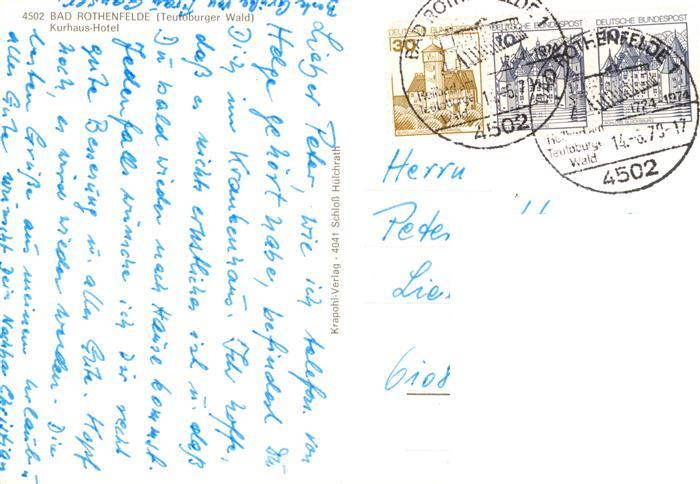 4502 BAD ROTHENFELDE (Teutoburger Wald)
Kurhaus-Hotel
Lieber Peter, wie ich telefon. von
Helge gehört habe, befindest Du
Dich im Krankenhaus. Ich hoffe,
daß es nichts ernstliches ist u. daß
Du bald wieder nach Hause kommst.
Jedenfalls wünsche ich Dir recht
gute Besserung u. alles Gute. Kopf
hoch, es wird wieder werden. Die
besten Grüße aus meinem Urlaub -
alles Gute wünscht Dein Nachbar Christian
Krapohl-Verlag - 4041 Schloß Hülchrath
DEUTSCHE BUNDESPOST
30
DEUTSCHE BUNDESPOST
10
DEUTSCHE BUNDESPOST
BAD ROTHENFELDE
Heilbad am
Teutoburger
Wald
4502
BAD ROTHENFELDE 1
1724-1974
Heilbad am
Teutoburger
Wald
14.-6.79-17
4502
Herrn
Peter
6108